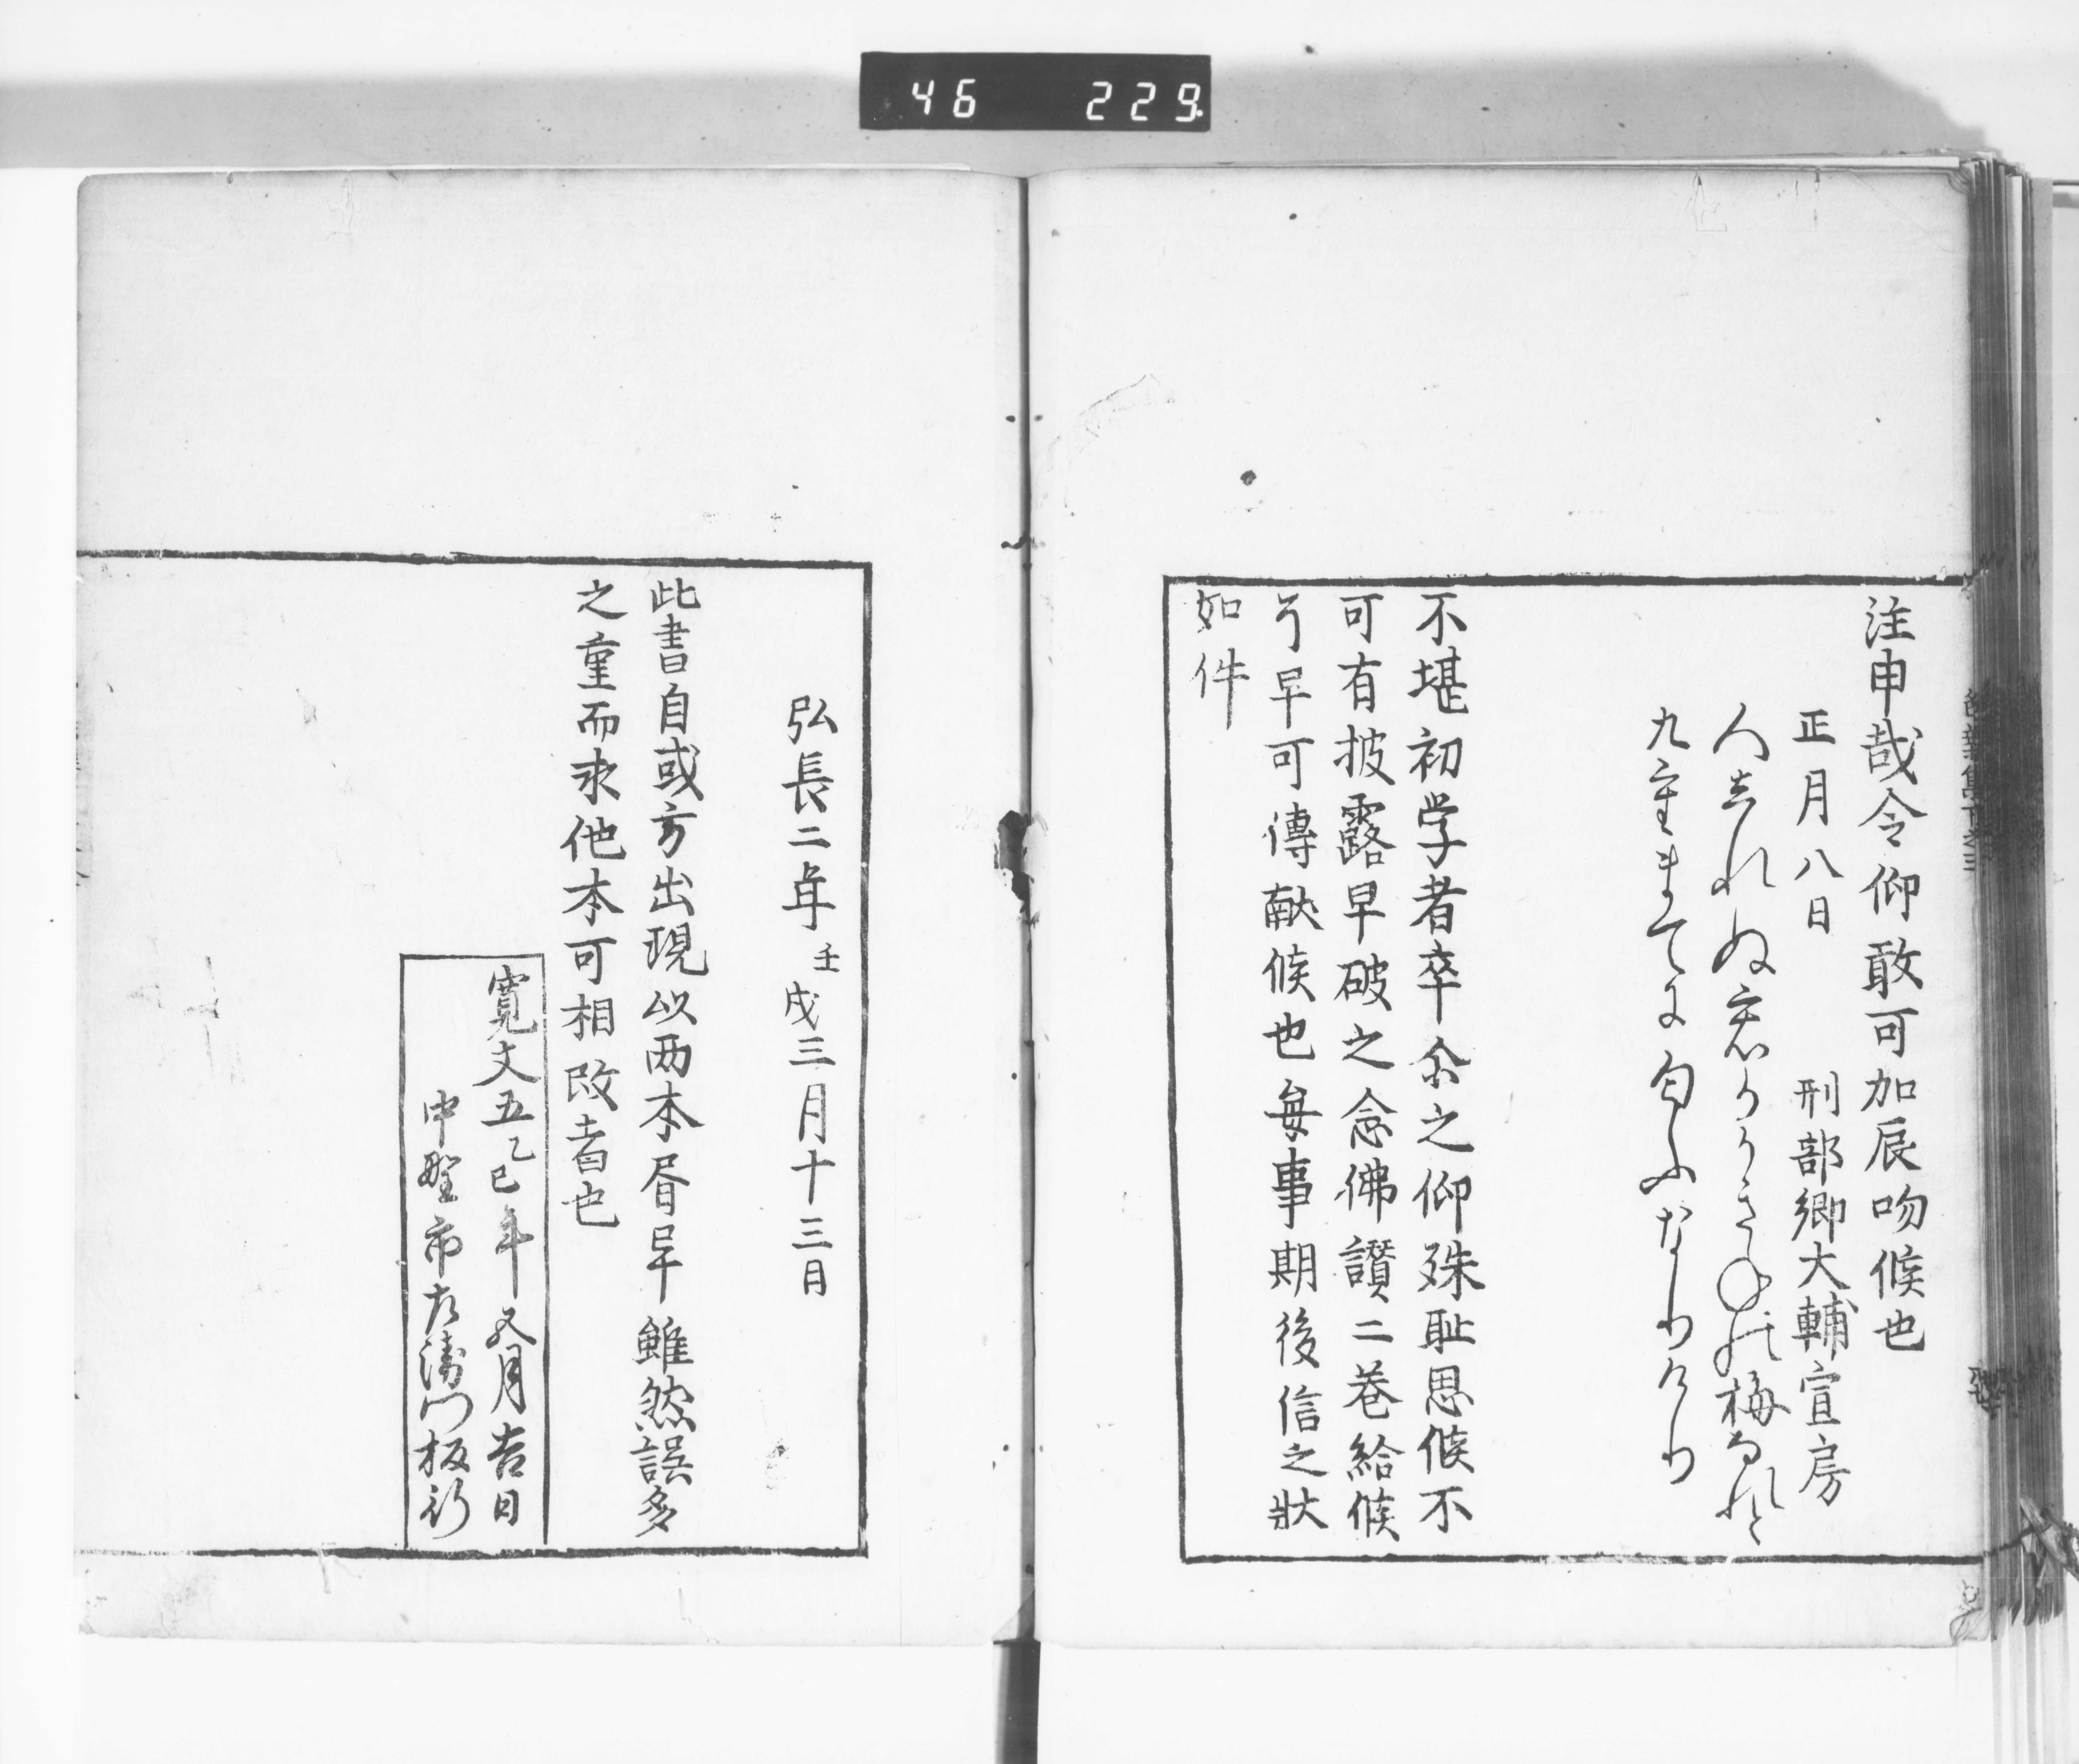 46 229
注申哉令仰敢可加辰吻候也
正月八日 刑部卿大輔宣房
人しれぬ むかき の梅なれと
九重まてに匂ふなりけり
不堪初学者卒尒之仰殊耻思候不
可有披露早破之念佛讃二巻給候
了早可傳献候也毎事期後信之狀
如件
弘長二年壬戌三月十三日
此書自或方出現以两本㫺早雖然誤多
之重而求他本可相改者也
寛文五乙巳年五月吉日
中野市右衛門板行